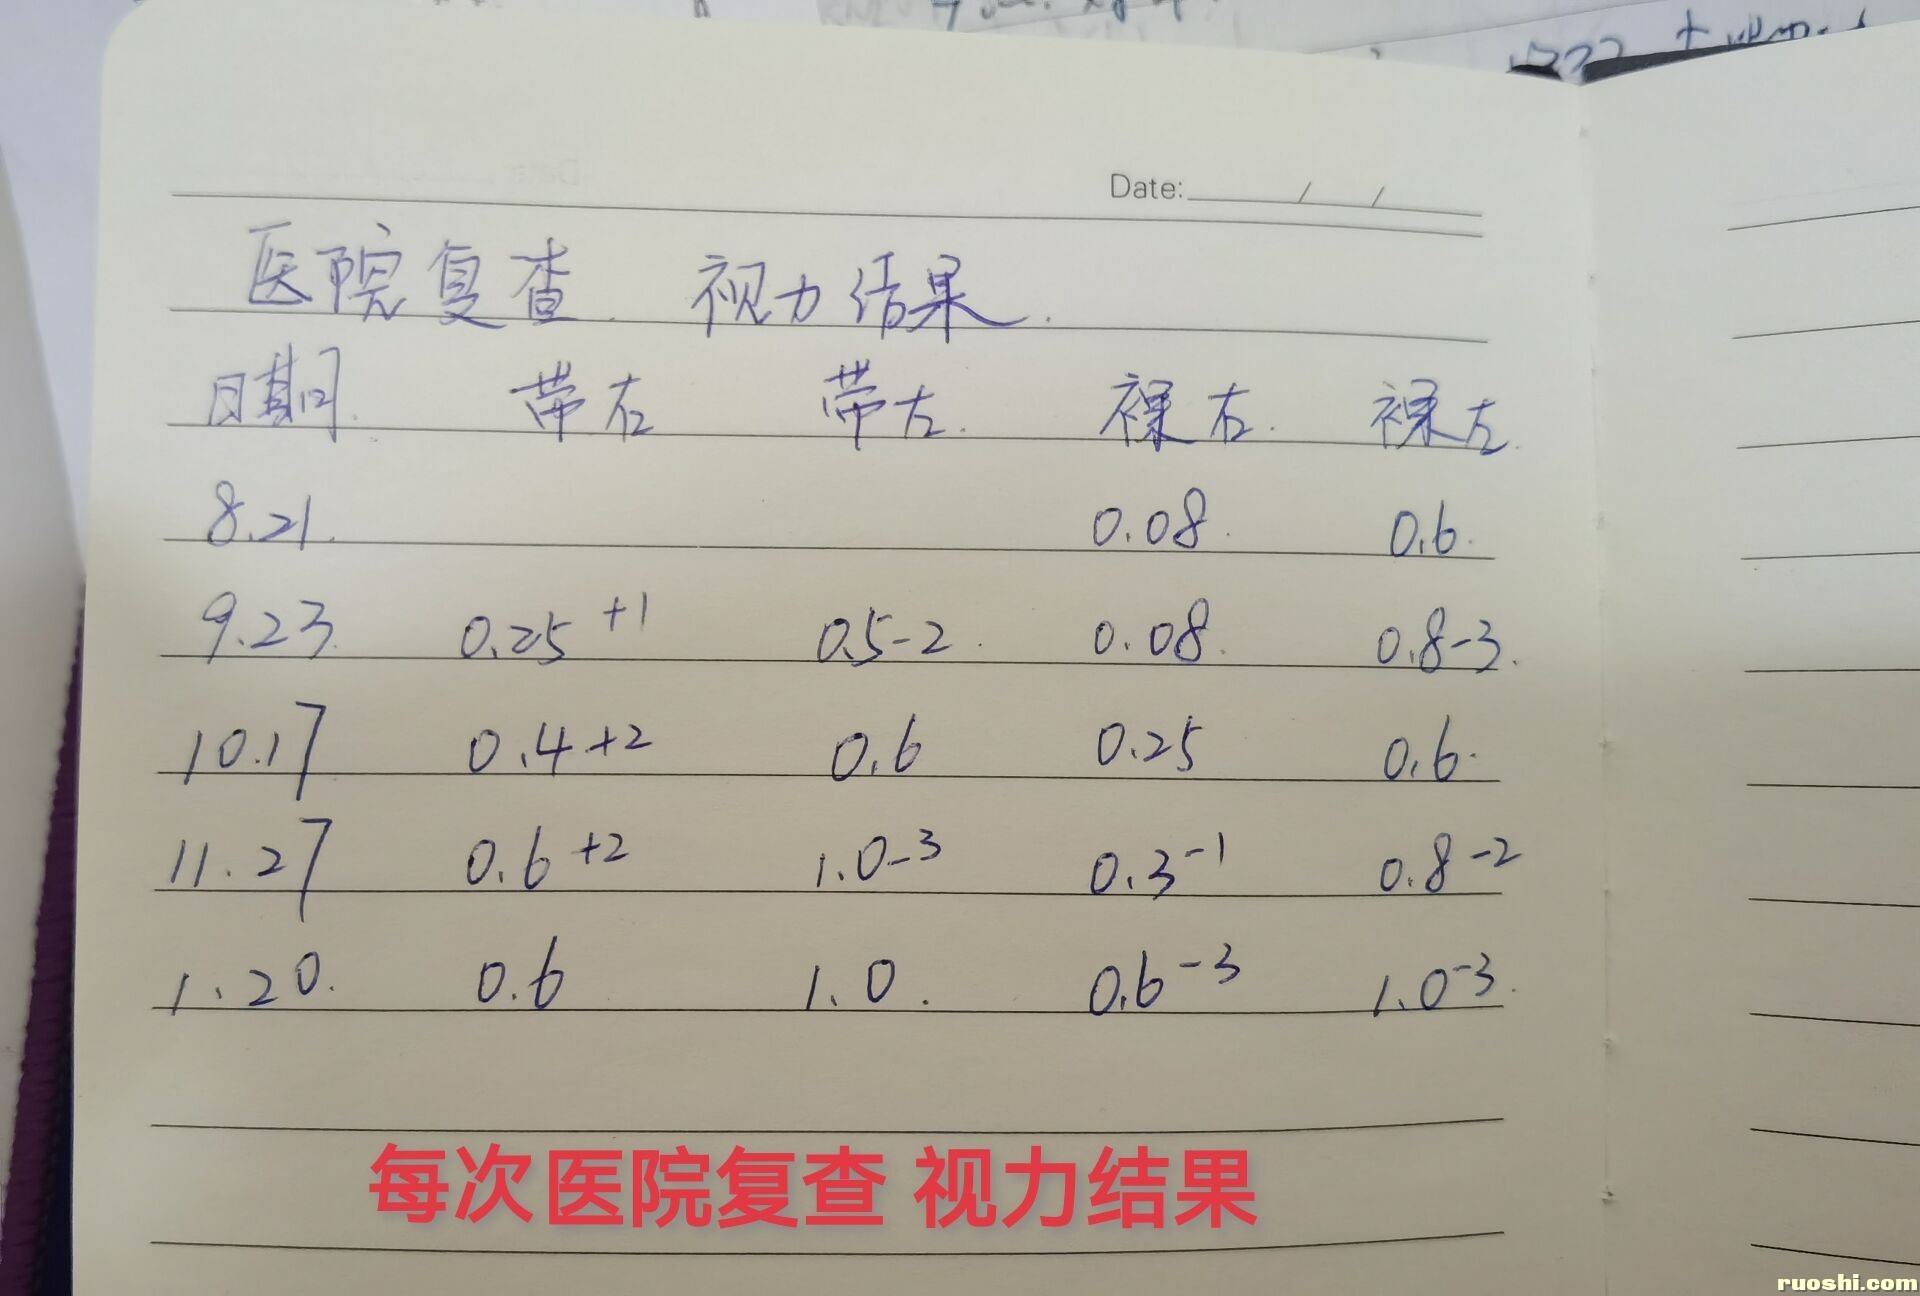 Date: / /
医院复查. 视力结果.
日期. 带右 带左. 裸右. 裸左.
8.21. 0.08. 0.6.
9.23. 0.25 +1 0.5-2. 0.08. 0.8-3.
10.17 0.4+2 0.6 0.25 0.6.
11.27 0.6 +2 1.0-3 0.3-1 0.8-2
1.20. 0.6 1.0. 0.6-3 1.0-3.
每次医院复查 视力结果
ruoshi.com